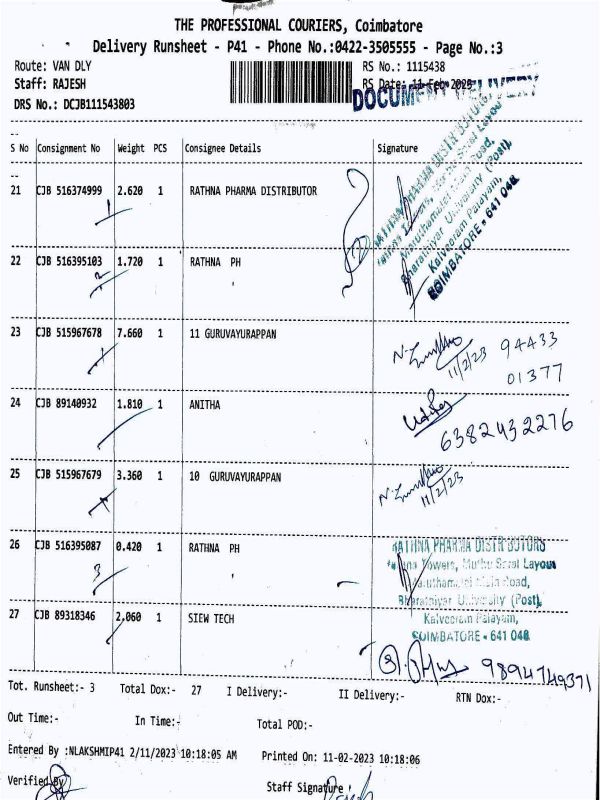 THE PROFESSIONAL COURIERS, Coimbatore
Delivery Runsheet - P41 - Phone No.:0422-3505555 - Page No.:3
Route: VAN DLY RS No.: 1115438
Staff: RAJESH RS Date: 11-Feb-2023
DRS No.: DCJB111543803
DOCUMENT DELIVERY
S No Consignment No Weight PCS Consignee Details Signature
21 CJB 516374999 2.620 1 RATHNA PHARMA DISTRIBUTOR
1
RATHNA PHARMA DISTRIBUTORS
Rathna Towers, Muthu Saral Layout
Maruthamalai Main Road,
Bharathiyar University (Post),
Kalveeram Palayam,
COIMBATORE - 641 046
22 CJB 516395103 1.720 1 RATHNA PH
2
23 CJB 515967678 7.660 1 11 GURUVAYURAPPAN
11/2/23 94433
01377
24 CJB 89140932 1.810 1 ANITHA
6382432276
25 CJB 515967679 3.360 1 10 GURUVAYURAPPAN
11/2/23
26 CJB 516395087 0.420 1 RATHNA PH
3
RATHNA PHARMA DISTRIBUTORS
Rathna Towers, Muthu Saral Layout
Maruthamalai Main Road,
Bharathiyar University (Post),
Kalveeram Palayam,
COIMBATORE - 641 046
27 CJB 89318346 2.060 1 SIEW TECH
9894749371
Tot. Runsheet:- 3 Total Dox:- 27 I Delivery:- II Delivery:- RTN Dox:-
Out Time:- In Time:- Total POD:-
Entered By :NLAKSHMIP41 2/11/2023 10:18:05 AM Printed On: 11-02-2023 10:18:06
Verified By Staff Signature